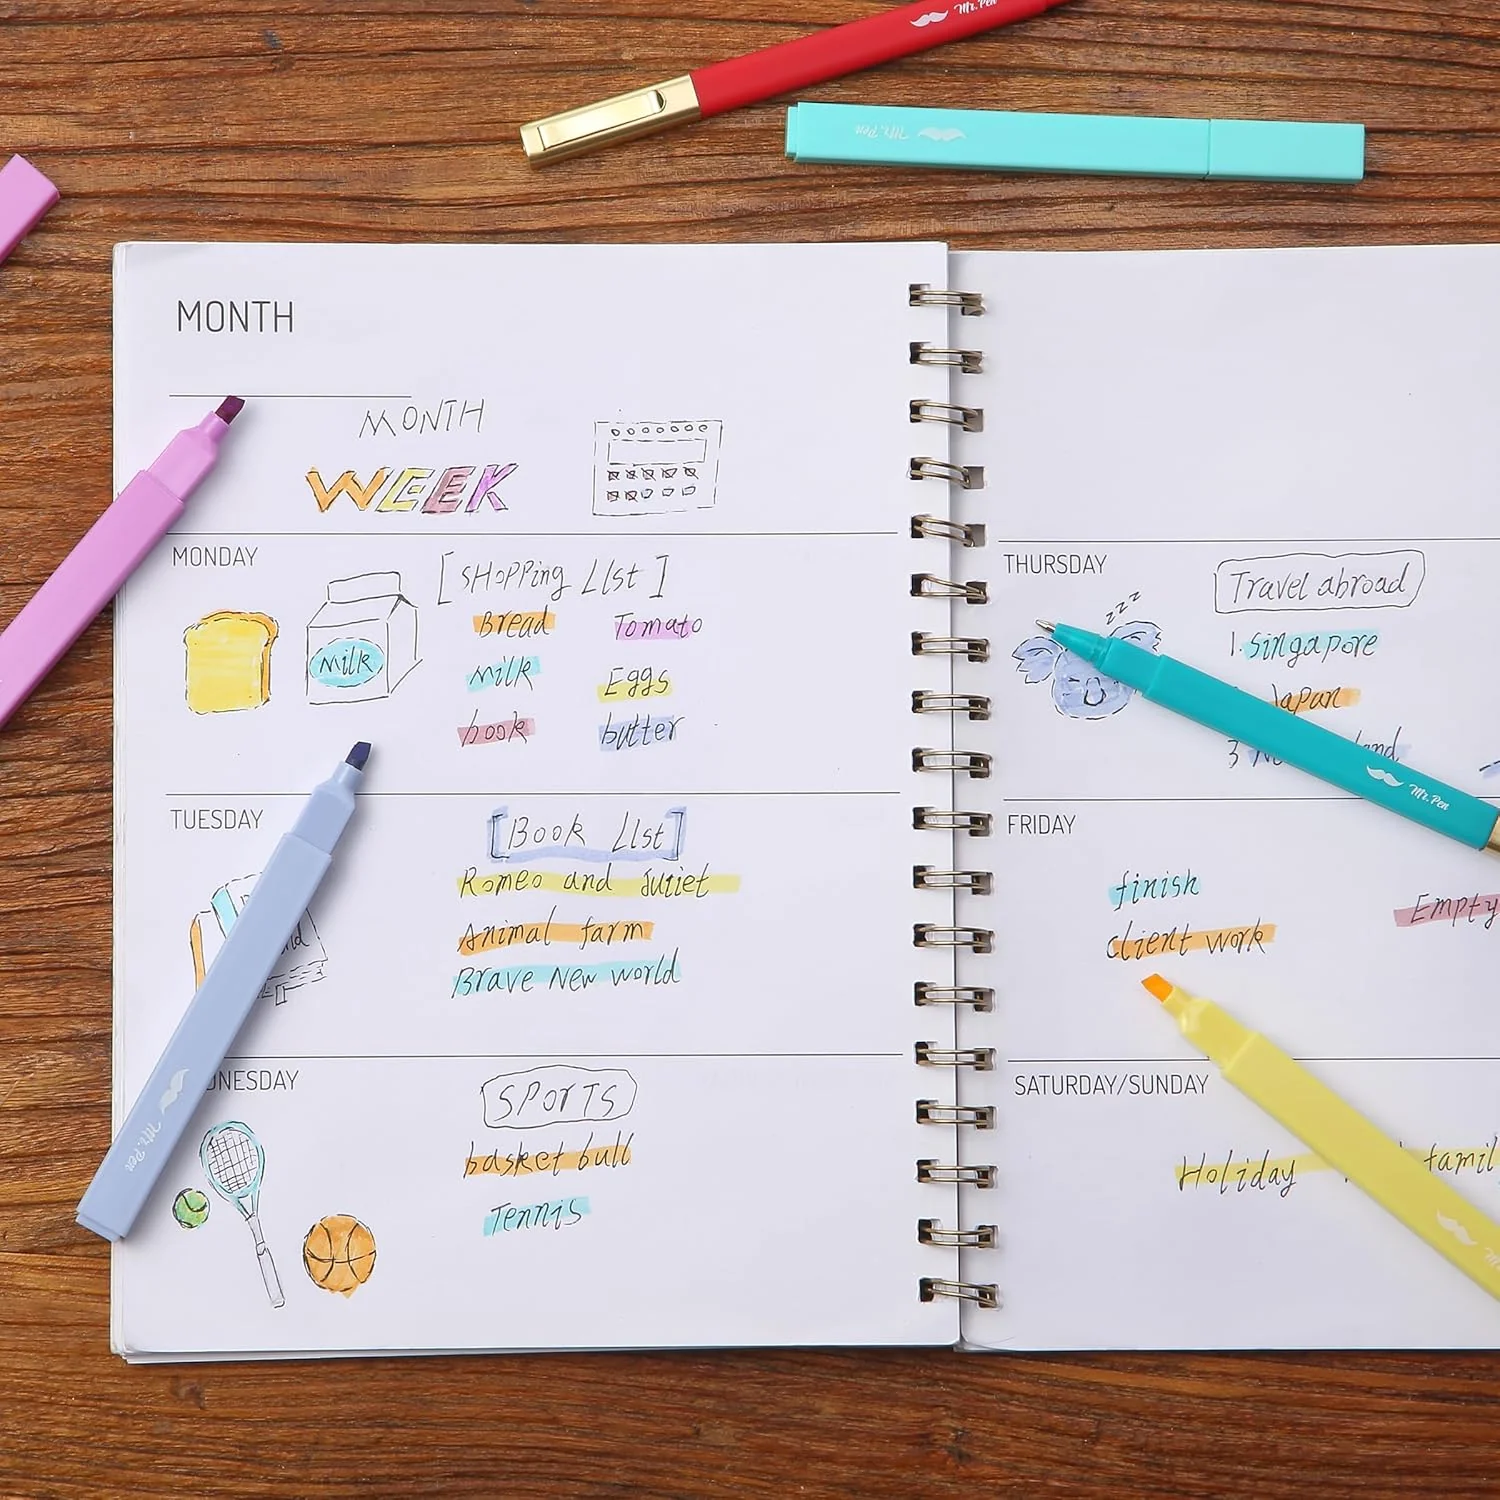 Mr. Pen
Mr. Pen
MONTH
MONTH
WEEK
MONDAY
[SHOPPing LIst]
Bread
Tomato
Milk
milk
Eggs
book
butter
TUESDAY
[Book LIst]
Romeo and Juliet
Animal farm
Brave New world
NESDAY
SPOrTS
basket bull
Tennis
Mr. Pen
THURSDAY
zzz
Travel abroad
1. Singapore
Japan
3
Mr. Pen
FRIDAY
finish
client work
Empty
SATURDAY/SUNDAY
Holiday